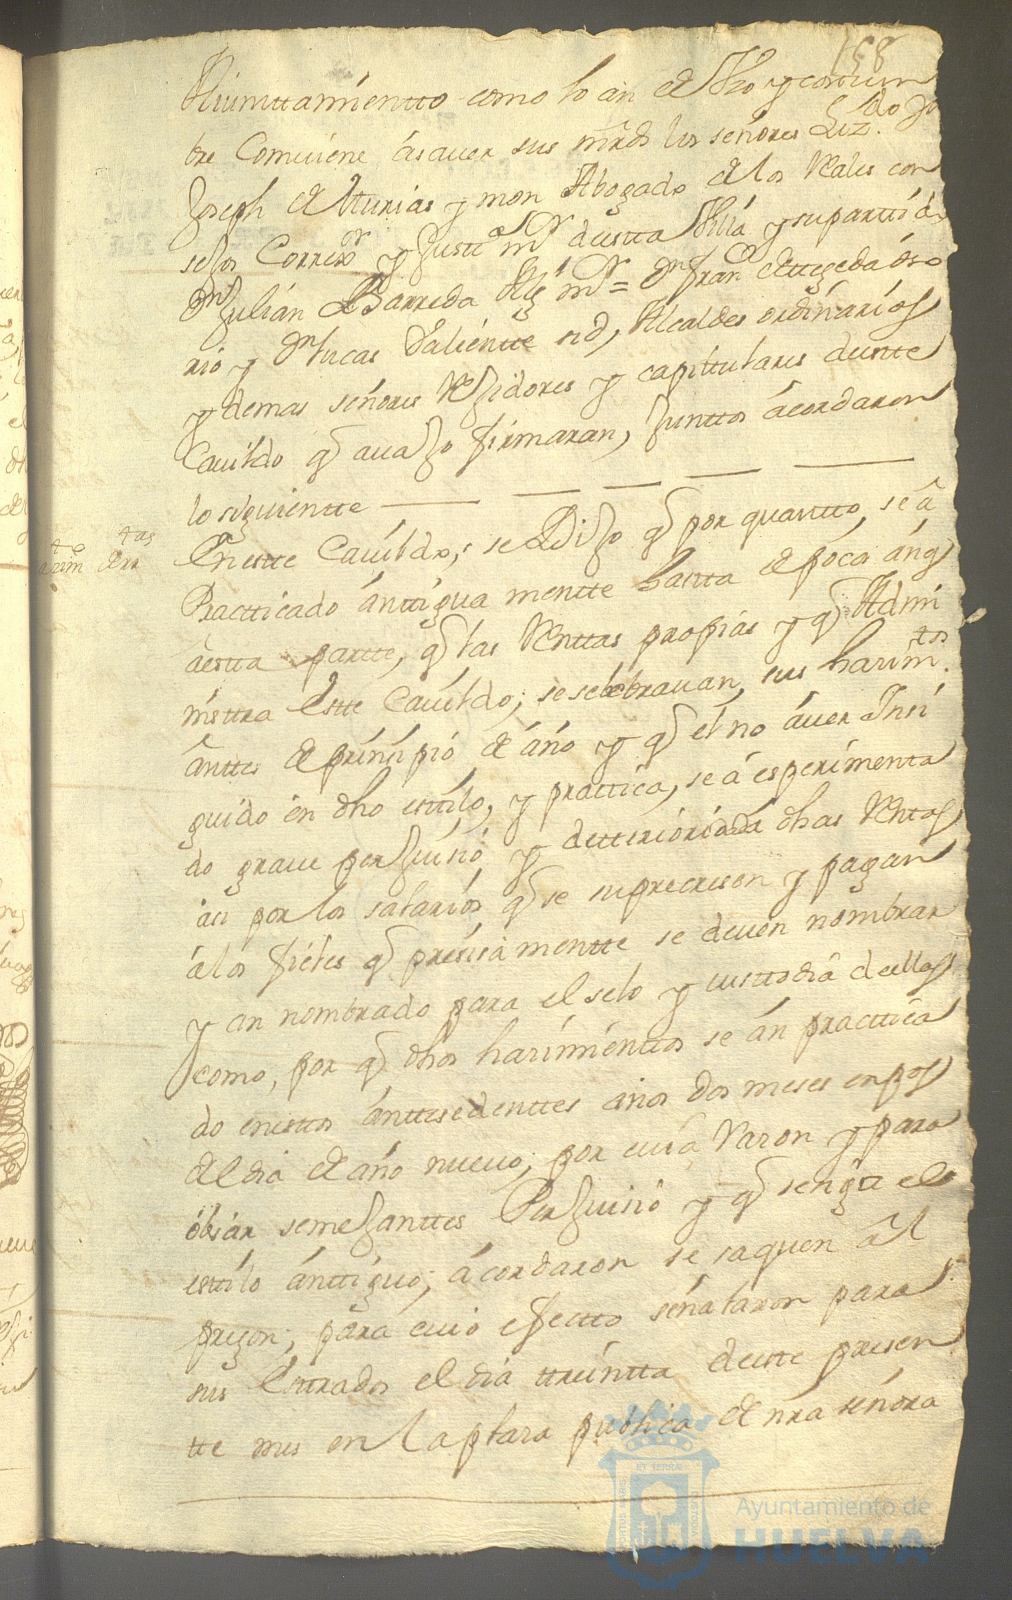 158
Aiunttamientto como lo an de Uso y costum
bre Comviene á saver sus mrds los señores Lizdo Dn
Joseph de Asturias y mon Abogado de los Reales con
sejos Correxor y Justa mr desta Villa y su parttido
Dn Julián Barreda Alg mr = Dn Fran de Azeda oso
rio y Dn lucas Valientte sid, Alcaldes ordinarios
y demas señores Rexidores y capittulares deeste
Cavildo q avaxo firmaran, Junttos ácordaron
lo siguientte
tto tas
arim de rn
En estte Cavildo, se Dixo q por quantto, se á
Practticado ánttigua mentte hasta de poco áng
aesta partte, q las Renttas propias y q Admi
nisttra Estte Cavildo, se selebravan, sus harimtos
ánttes de prinsipio de áño y q el no áver Insi
guido en dho esttilo, y practtica, se á esperimenta
do grave perJuisio y detterioridad dhas Rentas
asi por los salarios q se suprecreson y pagan
á los fieles q presisa mentte se deven nombrar
y an nombrado para el selo y custtodia de ellas
como, por q dhos harimienttos se án practtica
do enestos ánttesedenttes años dos meses en pos
del dia de año nuevo, por cuia Razon y para
obiar semeJanttes PerJuisio y q se siga el
esttilo ánttiguo, ácordaron se saquen ál
pregon, para cuio efectto señalaron para
sus Esttrados el dia ttreintta deeste presen
tte mes en la plaza publica de nra señora
ET TERRAE
PORTUS MARIS
CUSTODIA
Ayuntamiento de
HUELVA